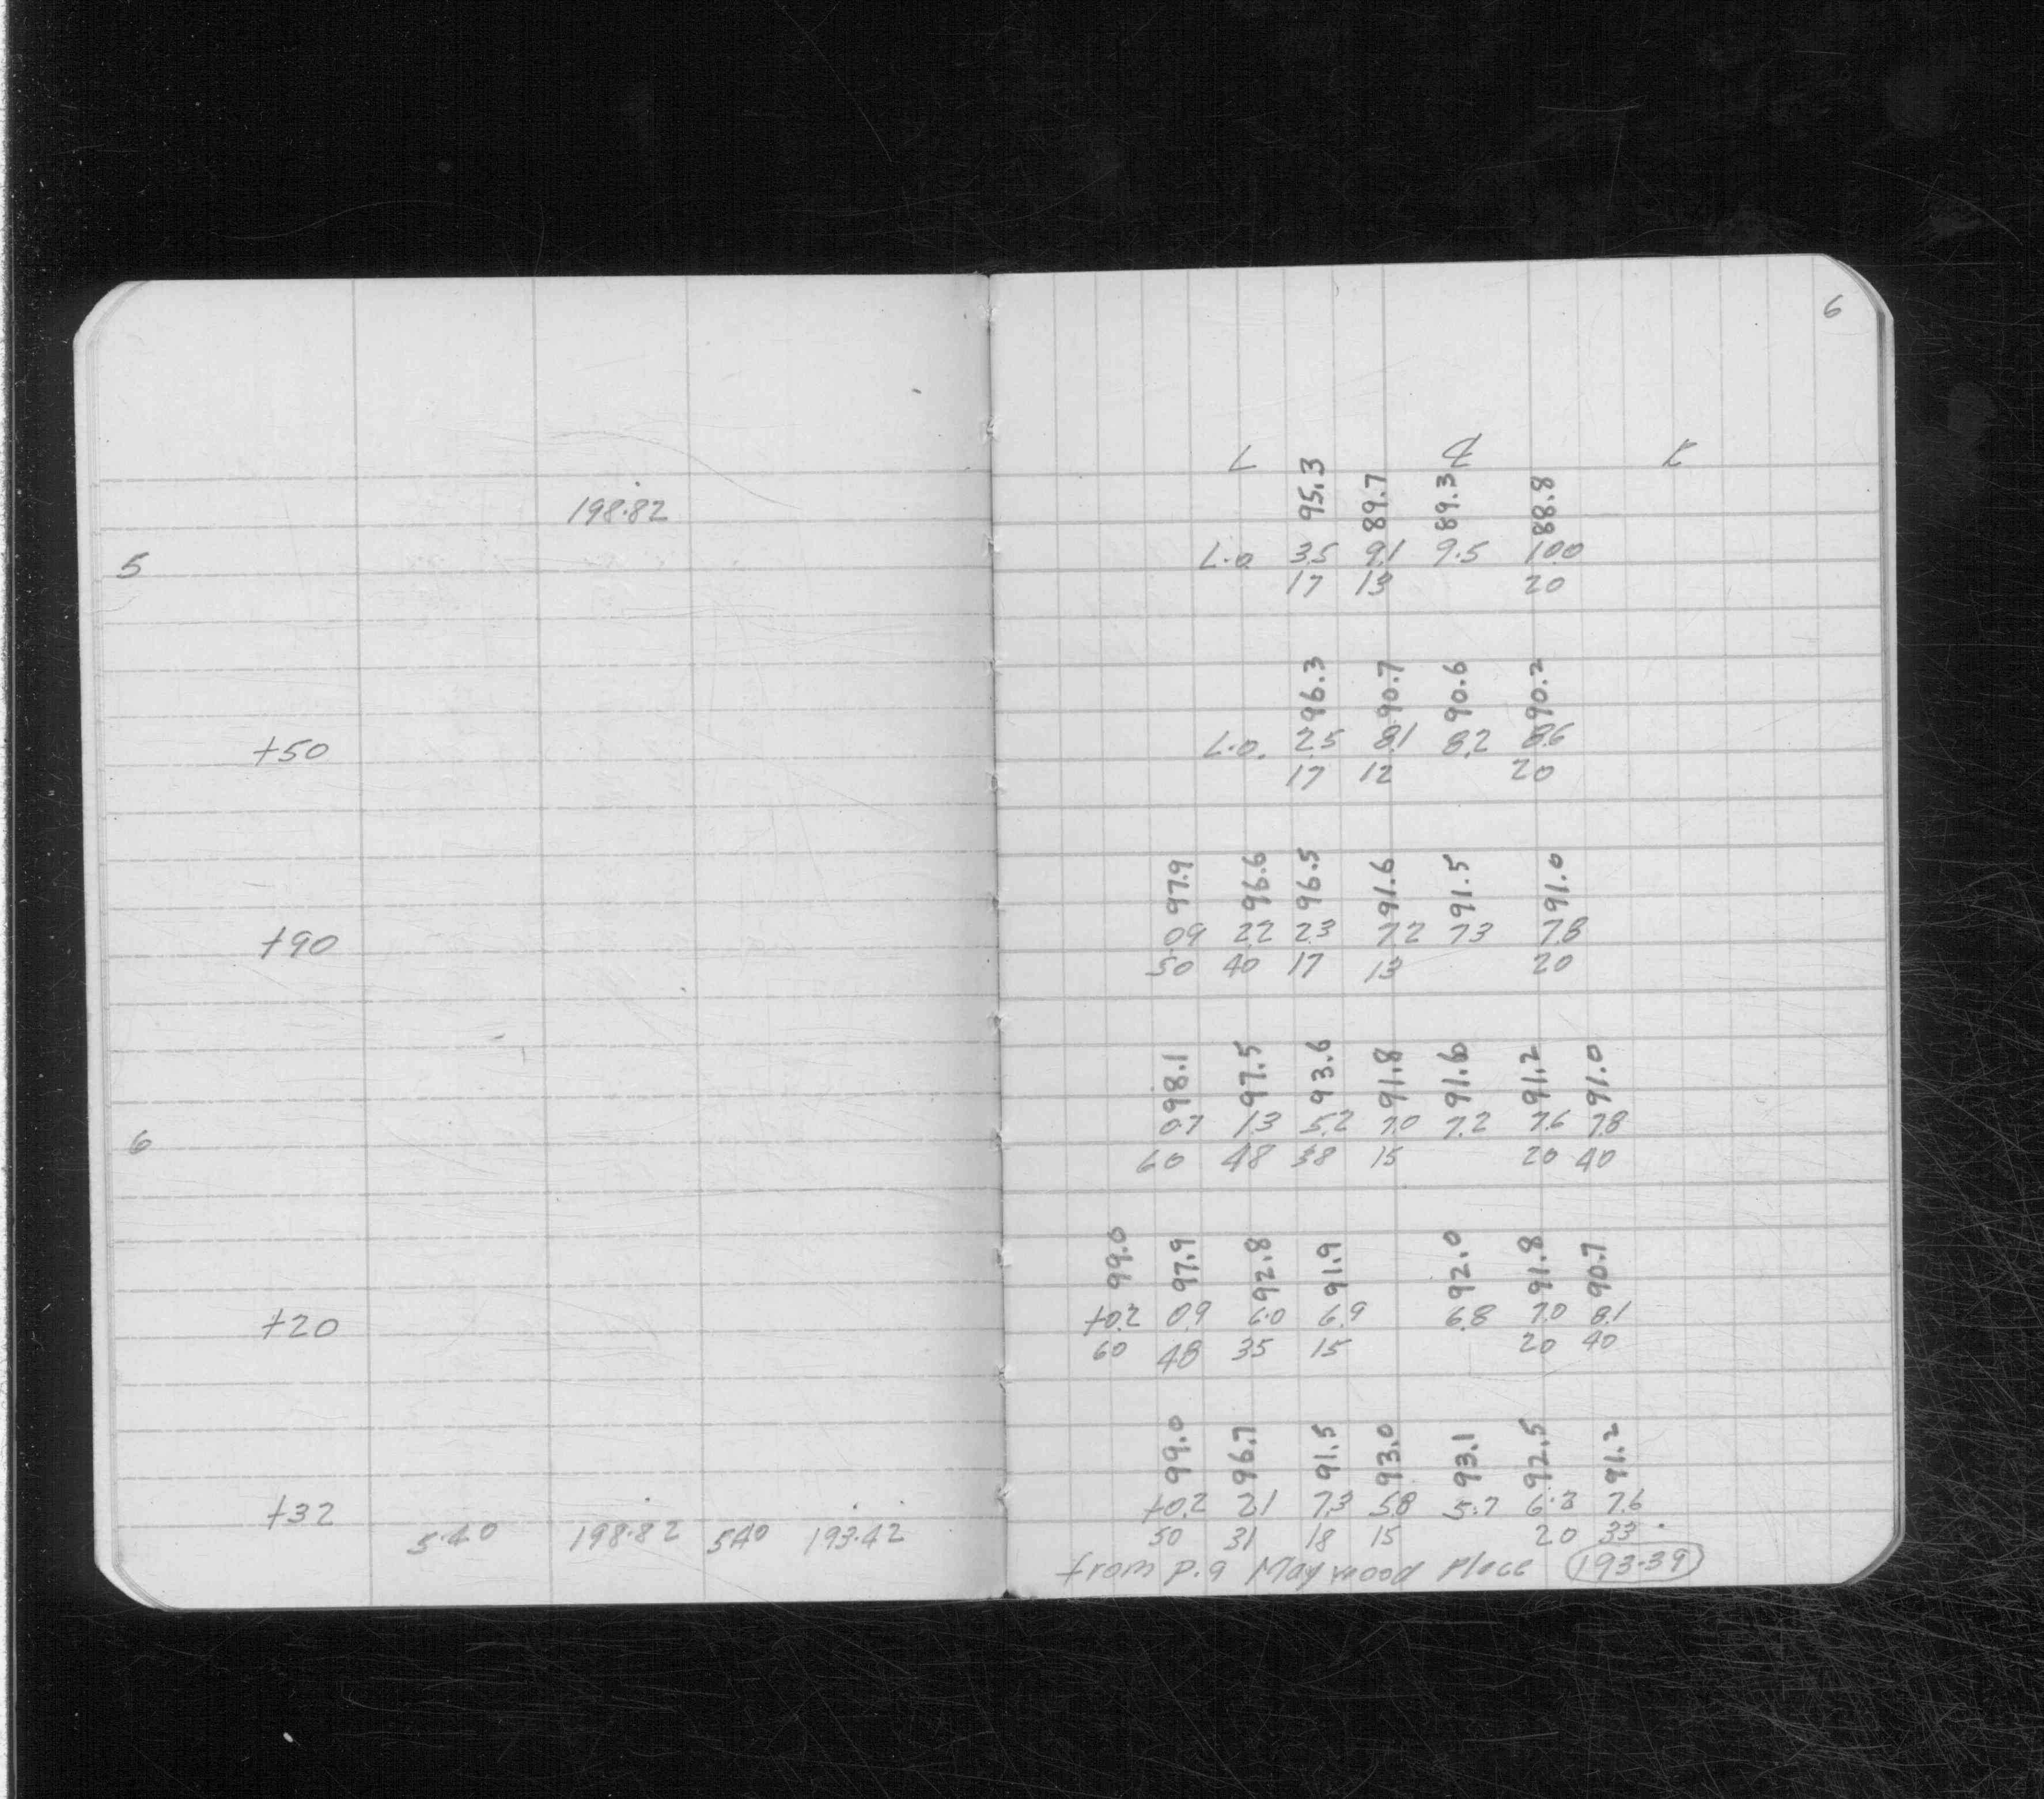 6
198.82
95.3 89.7 89.3 88.8
5 L.O. 3.5 9.1 9.5 10.0
17 13 20
96.3 90.7 90.6 90.2
+50 L.O. 2.5 8.1 8.2 8.6
17 12 20
97.9 96.6 96.5 91.6 91.5 91.0
+90 0.9 2.2 2.3 7.2 7.3 7.8
50 40 17 13 20
98.1 97.5 93.6 91.8 91.6 91.2 91.0
6 0.7 1.3 5.2 7.0 7.2 7.6 7.8
60 48 38 15 20 40
99.0 97.9 92.8 91.9 92.0 91.8 90.7
+20 +0.2 0.9 6.0 6.9 6.8 7.0 8.1
60 48 35 15 20 40
99.0 96.7 91.5 93.0 93.1 92.5 91.2
+32 +0.2 2.1 7.3 5.8 5.7 6.3 7.6
5.40 198.82 5.40 193.42 50 31 18 15 20 33
from p.9 Maywood Place 193.39